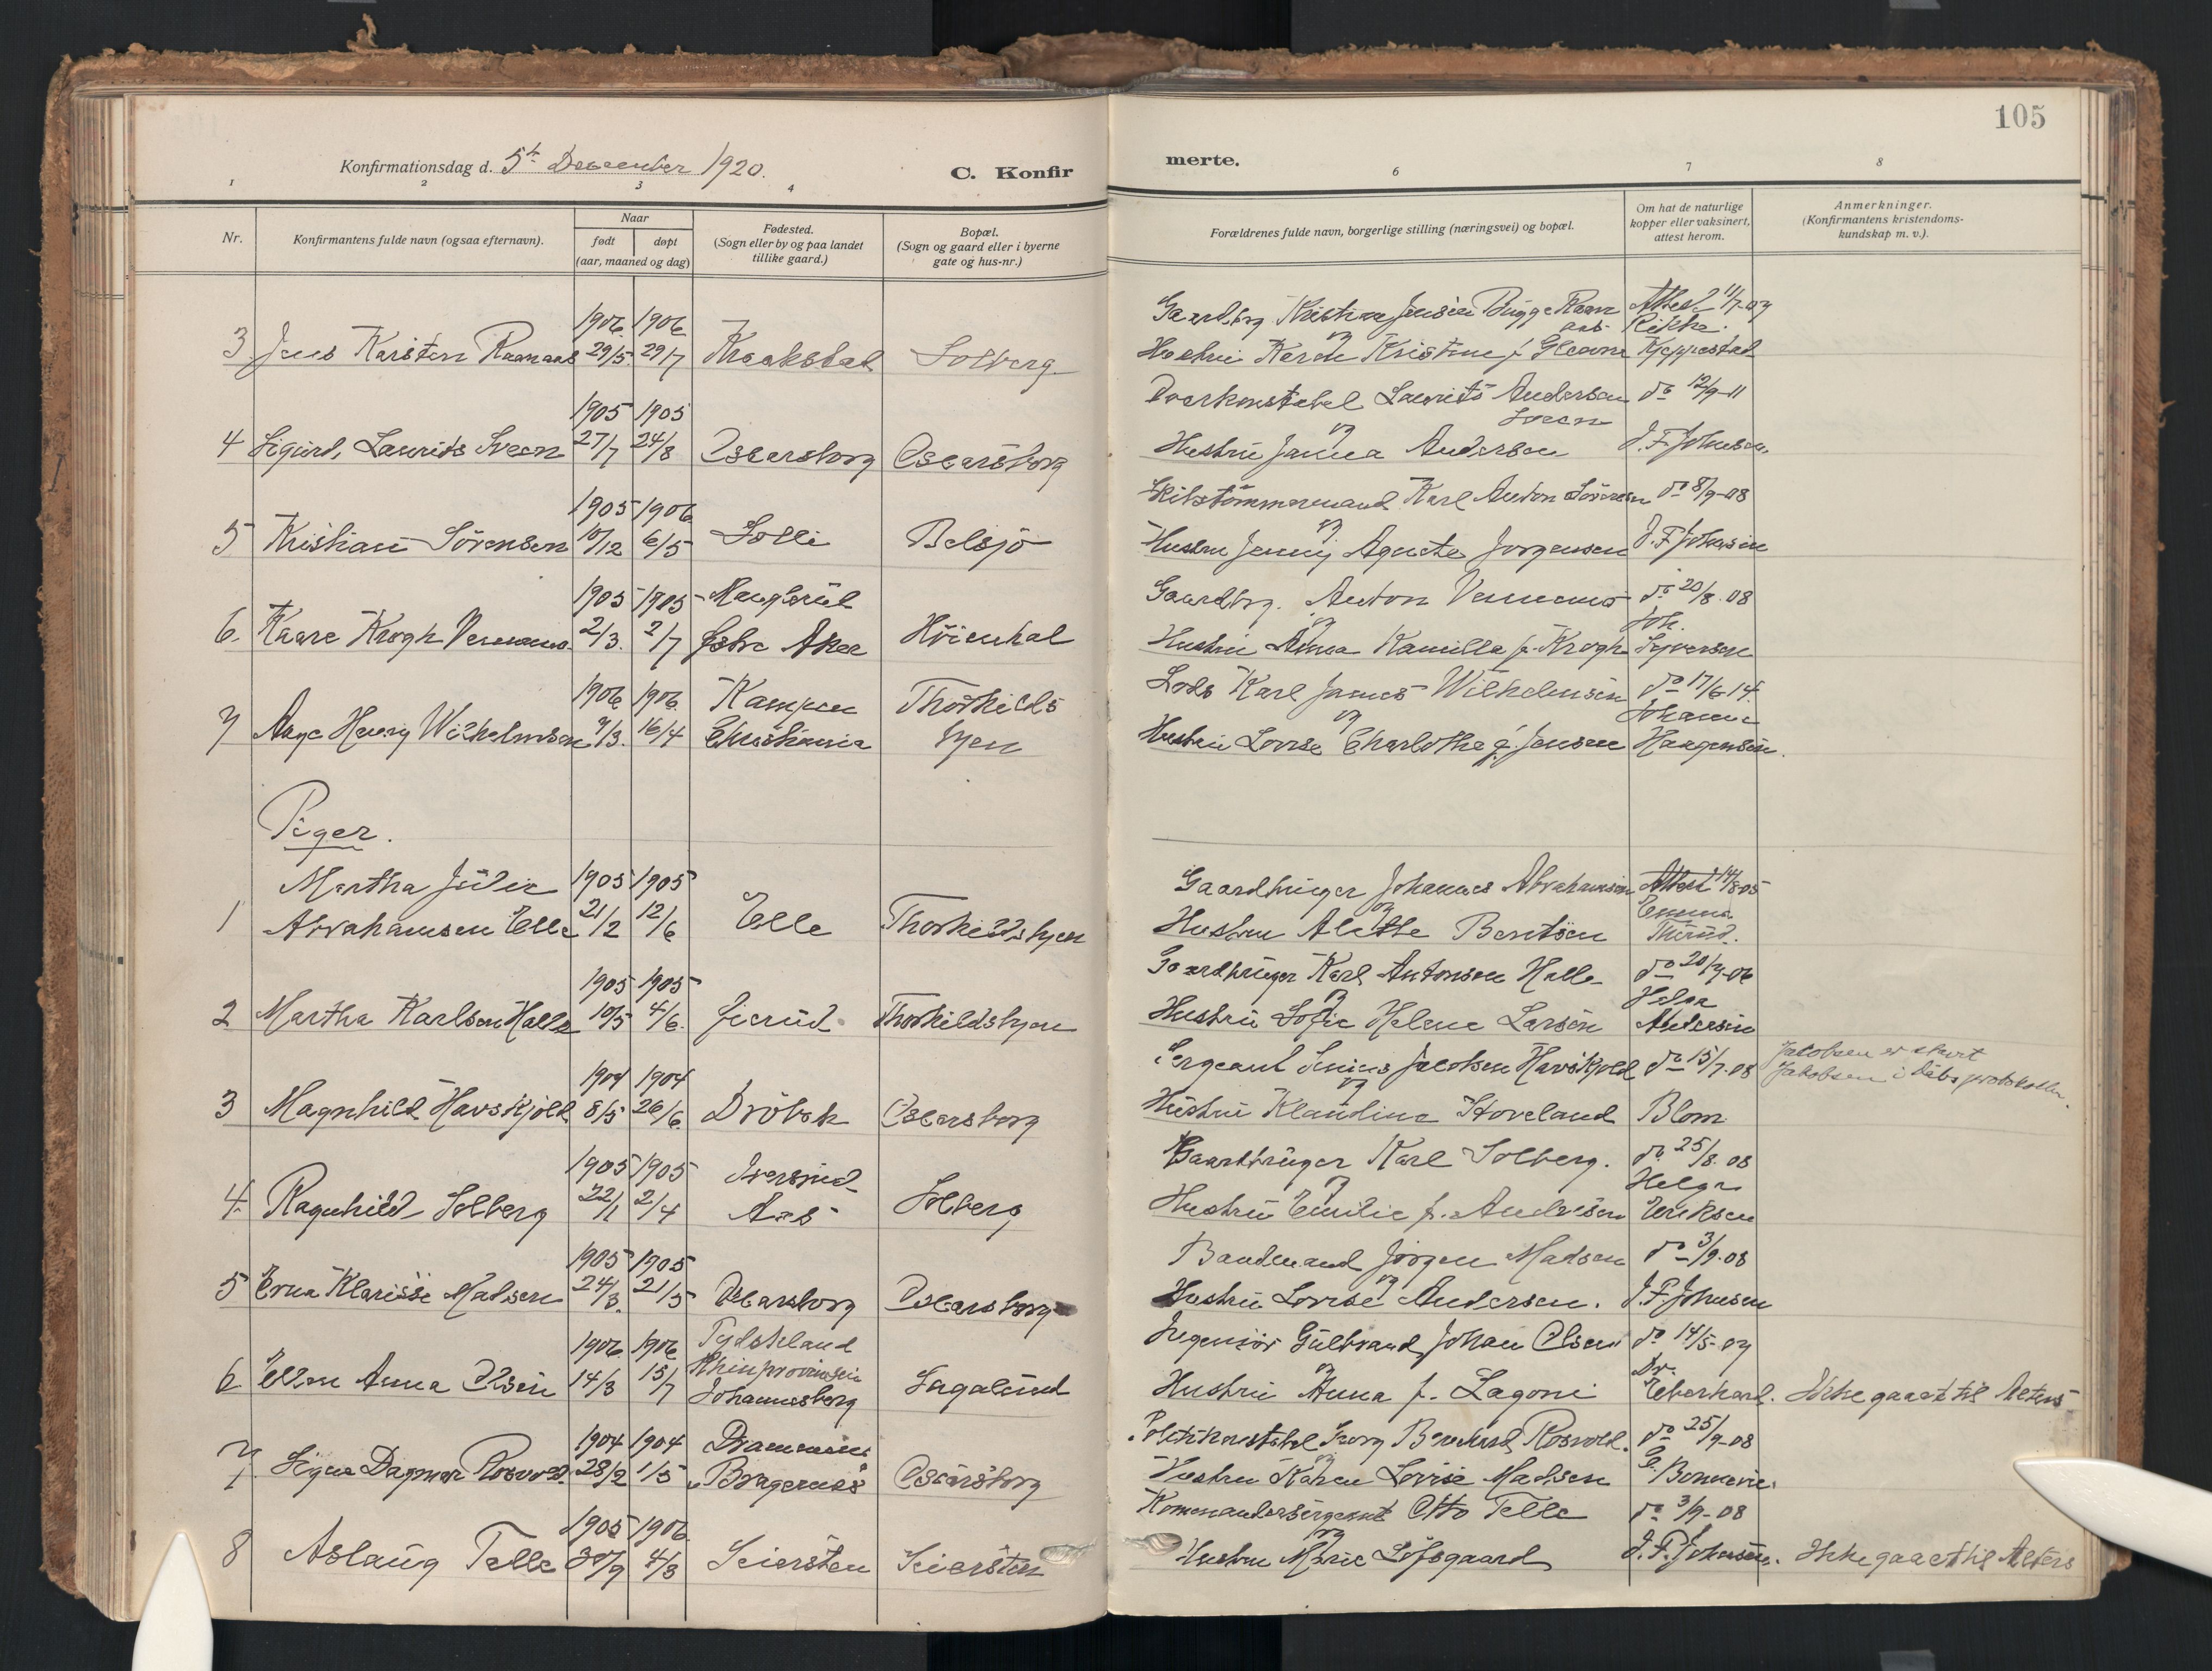 105
Konfirmationsdag d. 5te Desember 1920.
C. Konfir
merte.
1 2 3 4 6 7 8
Nr.
Konfirmantens fulde navn (ogsaa efternavn).
Naar
født
døpt
(aar, maaned og dag)
Fødested.
(Sogn eller by og paa landet
tillike gaard.)
Bopæl.
(Sogn og gaard eller i byerne
gate og hus-nr.)
Forældrenes fulde navn, borgerlige stilling (næringsvei) og bopæl.
Om hat de naturlige
kopper eller vaksinert,
attest herom.
Anmerkninger.
(Konfirmantens kristendoms-
kundskap m. v.).
1906 1906
3 Jens Karsten Raanaas 29/5 29/7 Kraakstad Solberg
Gaardbrg Kristian Jensen Bugge Raan
aas
og
Hustru Karen Kristine f Glenne
Attest 11/7-07
Rikke
Kjeppestad
1905 1905
4 Sigurd, Laurits Sveen 27/7 24/8 Oscarsborg Oscarsborg
Laurits Andersen
Sveen
og
Hustru Janna Andersen
do 12/9-11
J. F. Johnsen
1905 1906
5 Kristian Sörensen 10/12 6/5 Solli Belsjö
Skibstömmermand Karl Anton Sörensen
og
Hustru Jenny Agnete Jorgensen
do 8/9-08
J. F Johnsen
1905 1905 Manglerud
6. Kaare Krogh Vennemo 2/3. 2/7 Östre Aker Höienhal
Gaardbrg. Anton Vennemo
og
Hustru Anna Kamilla f. Krogh
do 20/8.08
Joh.
Syversen
1906 1906 Kampen Thorkilds
7 Aage Henry Wilhelmsen 7/3. 16/4 Christiania byen
Lods Karl James Wilhelmsen
og
Hustru Lovise Charlothe f. Jensen
do 17/6 14.
Johanne
Haagensen.
Piger.
Martha Julie 1905 1905
1 Abrahamsen Elle 21/2 12/6 Elle Thorkildsbyen
Gaardbruger Johannes Abrahamsen
og
Hustru Alethe Berntsen
Attest 14/8 05
Emma
Thürud.
1905 1905
2 Martha Karlsen Halle 10/5 4/6. Gierud Thorkildsbyen
Gaardbruger Karl Antonsen Halle
og
Hustru Sofie Helene Larsen
do 20/7-06
Helga
Andersen
1904 1904
3 Magnhild Havskjold 8/5 26/6 Dröbak Oscarsborg
Sergeant Jacobsen Havskjold
og
Hustru Klaudine Hoveland
do 15/7.08
Blom
Jakobsen er
Jakobsen i Dåbsprotokollen.
1905 1905
4. Ragnhild Solberg 22/1 2/4 Aas Solberg
Gaardbruger Karl Solberg.
og
Hustru Emilie f. Andresen
do 25/8.08
Helga
Eriksen
1905 1905
5 Erna Klarisse Madsen 24/3. 21/5 Oscarsborg Oscarsborg
Baadmand Jörgen Madsen
og
Hustru Lovise Andersen.
do 3/9.08
J. F. Johnsen
1906 1906 Tydskland
Rhinprovinsen
6 Ellen Anna Olsen 14/3 15/7 Johannesberg Sagalund
Ingeniör Gulbrand Johan Olsen
og
Hustru Anna f. Lagoni
do 14/5-07
Dr.
Eberhard.
Ikke gaaet til Alters
1904 1904 Drammen
7 Signe Dagmar Rosvold 28/2 1/5 "Bragernes" Oscarsborg
Politikonstabel Georg Bernhard Rosvold.
og
Hustru Karen Lovise Madsen
do 25/9-08
Bonnevie
1905 1906
8 Aslaug Telle 30/9 4/3 Seiersten Seiersten
Komandersergeant Otto Telle
og
Hustru Marie Löfsgaard
do 3/9-08
J. F. Johnsen.
Ikke gaaet til Alters